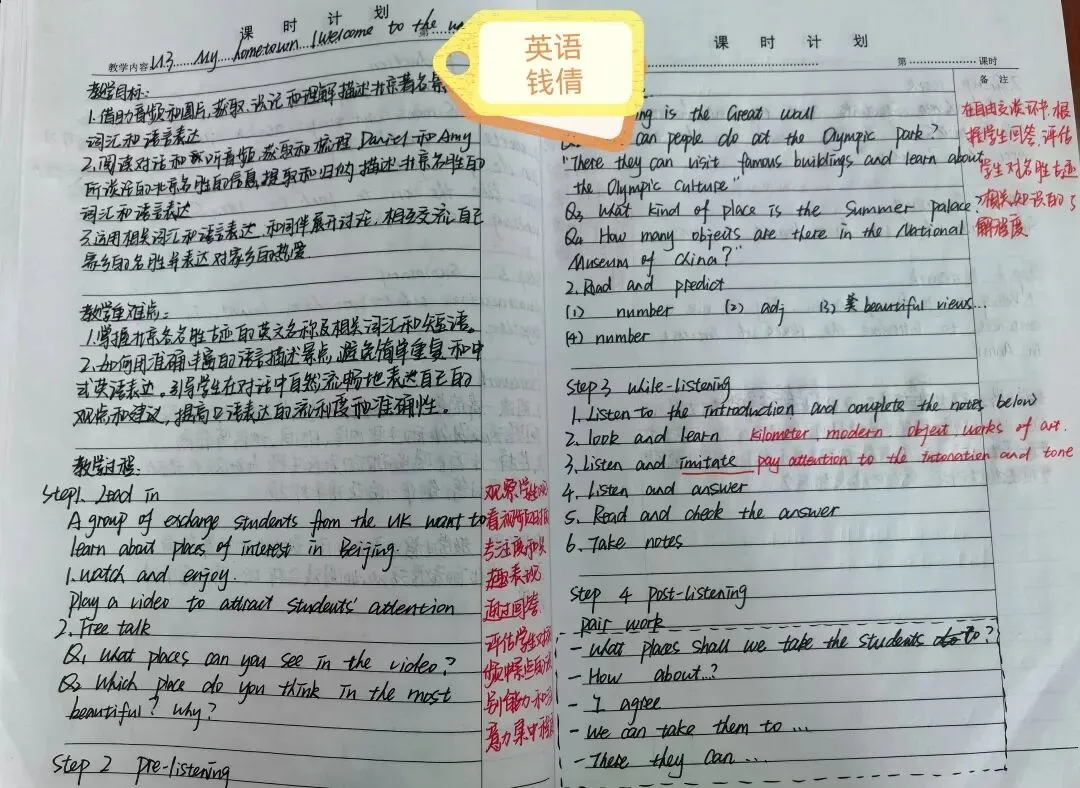 课时计划
教学内容 U3 My hometown (welcome to the
第
教学目标:
1.借助音频和图片,获取、识记和理解描述北京著名景
词汇和语言表达
2.阅读对话和聆听音频,获取和梳理 Daniel 和 Amy
所谈论的北京名胜的信息,提取和归纳描述北京名胜的
词汇和语言表达
3.运用相关词汇和语言表达,和同伴展开讨论,相互交流自己
家乡的名胜并表达对家乡的热爱
教学重难点:
1.掌握北京各名胜古迹的英文名称及相关词汇和短语。
2.如何用准确丰富的语言描述景点,避免简单重复和中
式英语表达。引导学生在对话中自然流畅地表达自己的
观点和建议,提高口语表达的流利度和准确性。
教学过程:
Step1. Lead in
A group of exchange students from the UK want to
learn about places of interest in Beijing.
1. Watch and enjoy.
Play a video to attract students' attention
2. Free talk
Q1 What places can you see in the video?
Q2 Which place do you think in the most
beautiful? Why?
Step 2 pre-listening
观察学生
看视频时的
专注度和兴
趣表现
通过回答
评估学生对视
频中景点的
别能力和
意力集中程度
英语
钱倩
课时计划
第 课时
备注
is the Great wall
can people do at the Olympic park?
"There they can visit famous buildings and learn about
the Olympic culture"
Q3 What kind of place is the Summer palace?
Q4 How many objects are there in the National
Museum of China?
2. Read and predict
(1) number (2) adj (3) beautiful views...
(4) number
Step3 while-listening
1. Listen to the introduction and complete the notes below
2. look and learn kilometer, modern object works of art.
3. Listen and imitate pay attention to the intonation and tone
4. Listen and answer
5. Read and check the answer
6. Take notes
Step 4 post-listening
pair work
- What places shall we take the students to?
- How about...?
- I agree
- We can take them to ...
- There they can ...
在自由交谈环节,根
据学生回答,评估
学生对名胜古迹
相关知识的了
解程度